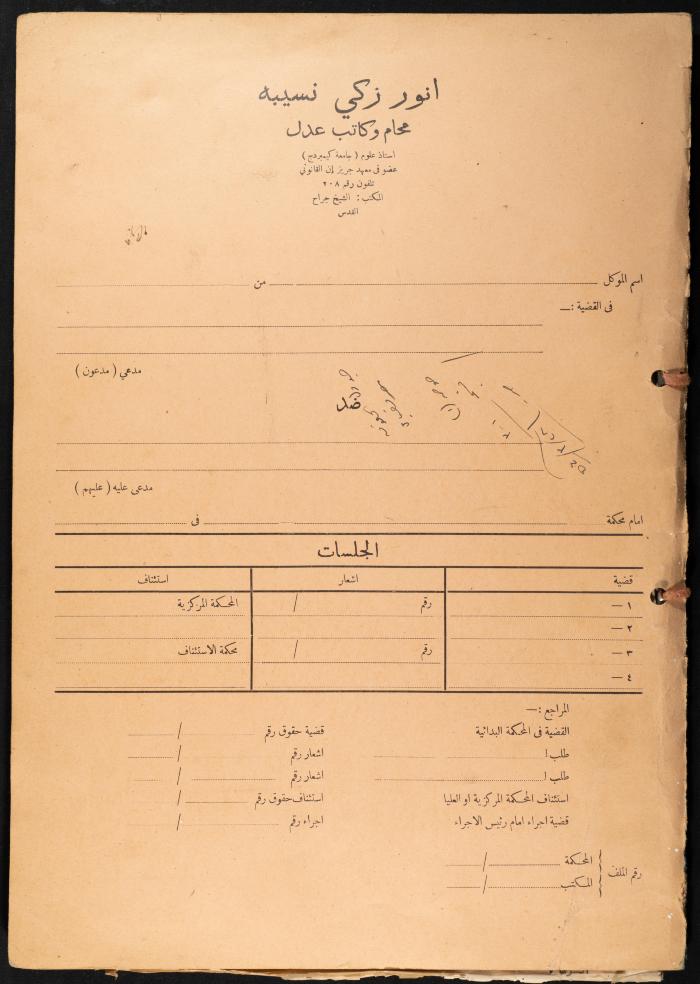 انور زكي نسيبه
محام وكاتب عدل
استاذ علوم ( جامعة كيمبردج )
عضو في معهد جريز إن القانوني
تلفون رقم ٢٠٨
المكتب : الشيخ جراح
القدس
اسم الموكل من
في القضية :—
مدعي ( مدعون )
ضد
مدعى عليه ( عليهم )
امام محكمة في
الجلسات
قضية اشعار استئناف
١ — رقم / المحكمة المركزية
٢ —
٣ — رقم / محكمة الاستئناف
٤ —
المراجع :—
القضية في المحكمة البدائية قضية حقوق رقم /
طلب ا اشعار رقم /
طلب ا اشعار رقم /
استئناف المحكمة المركزية او العليا استئناف حقوق رقم /
قضية اجراء امام رئيس الاجراء اجراء رقم /
رقم الملف
المحكمة /
المكتب /